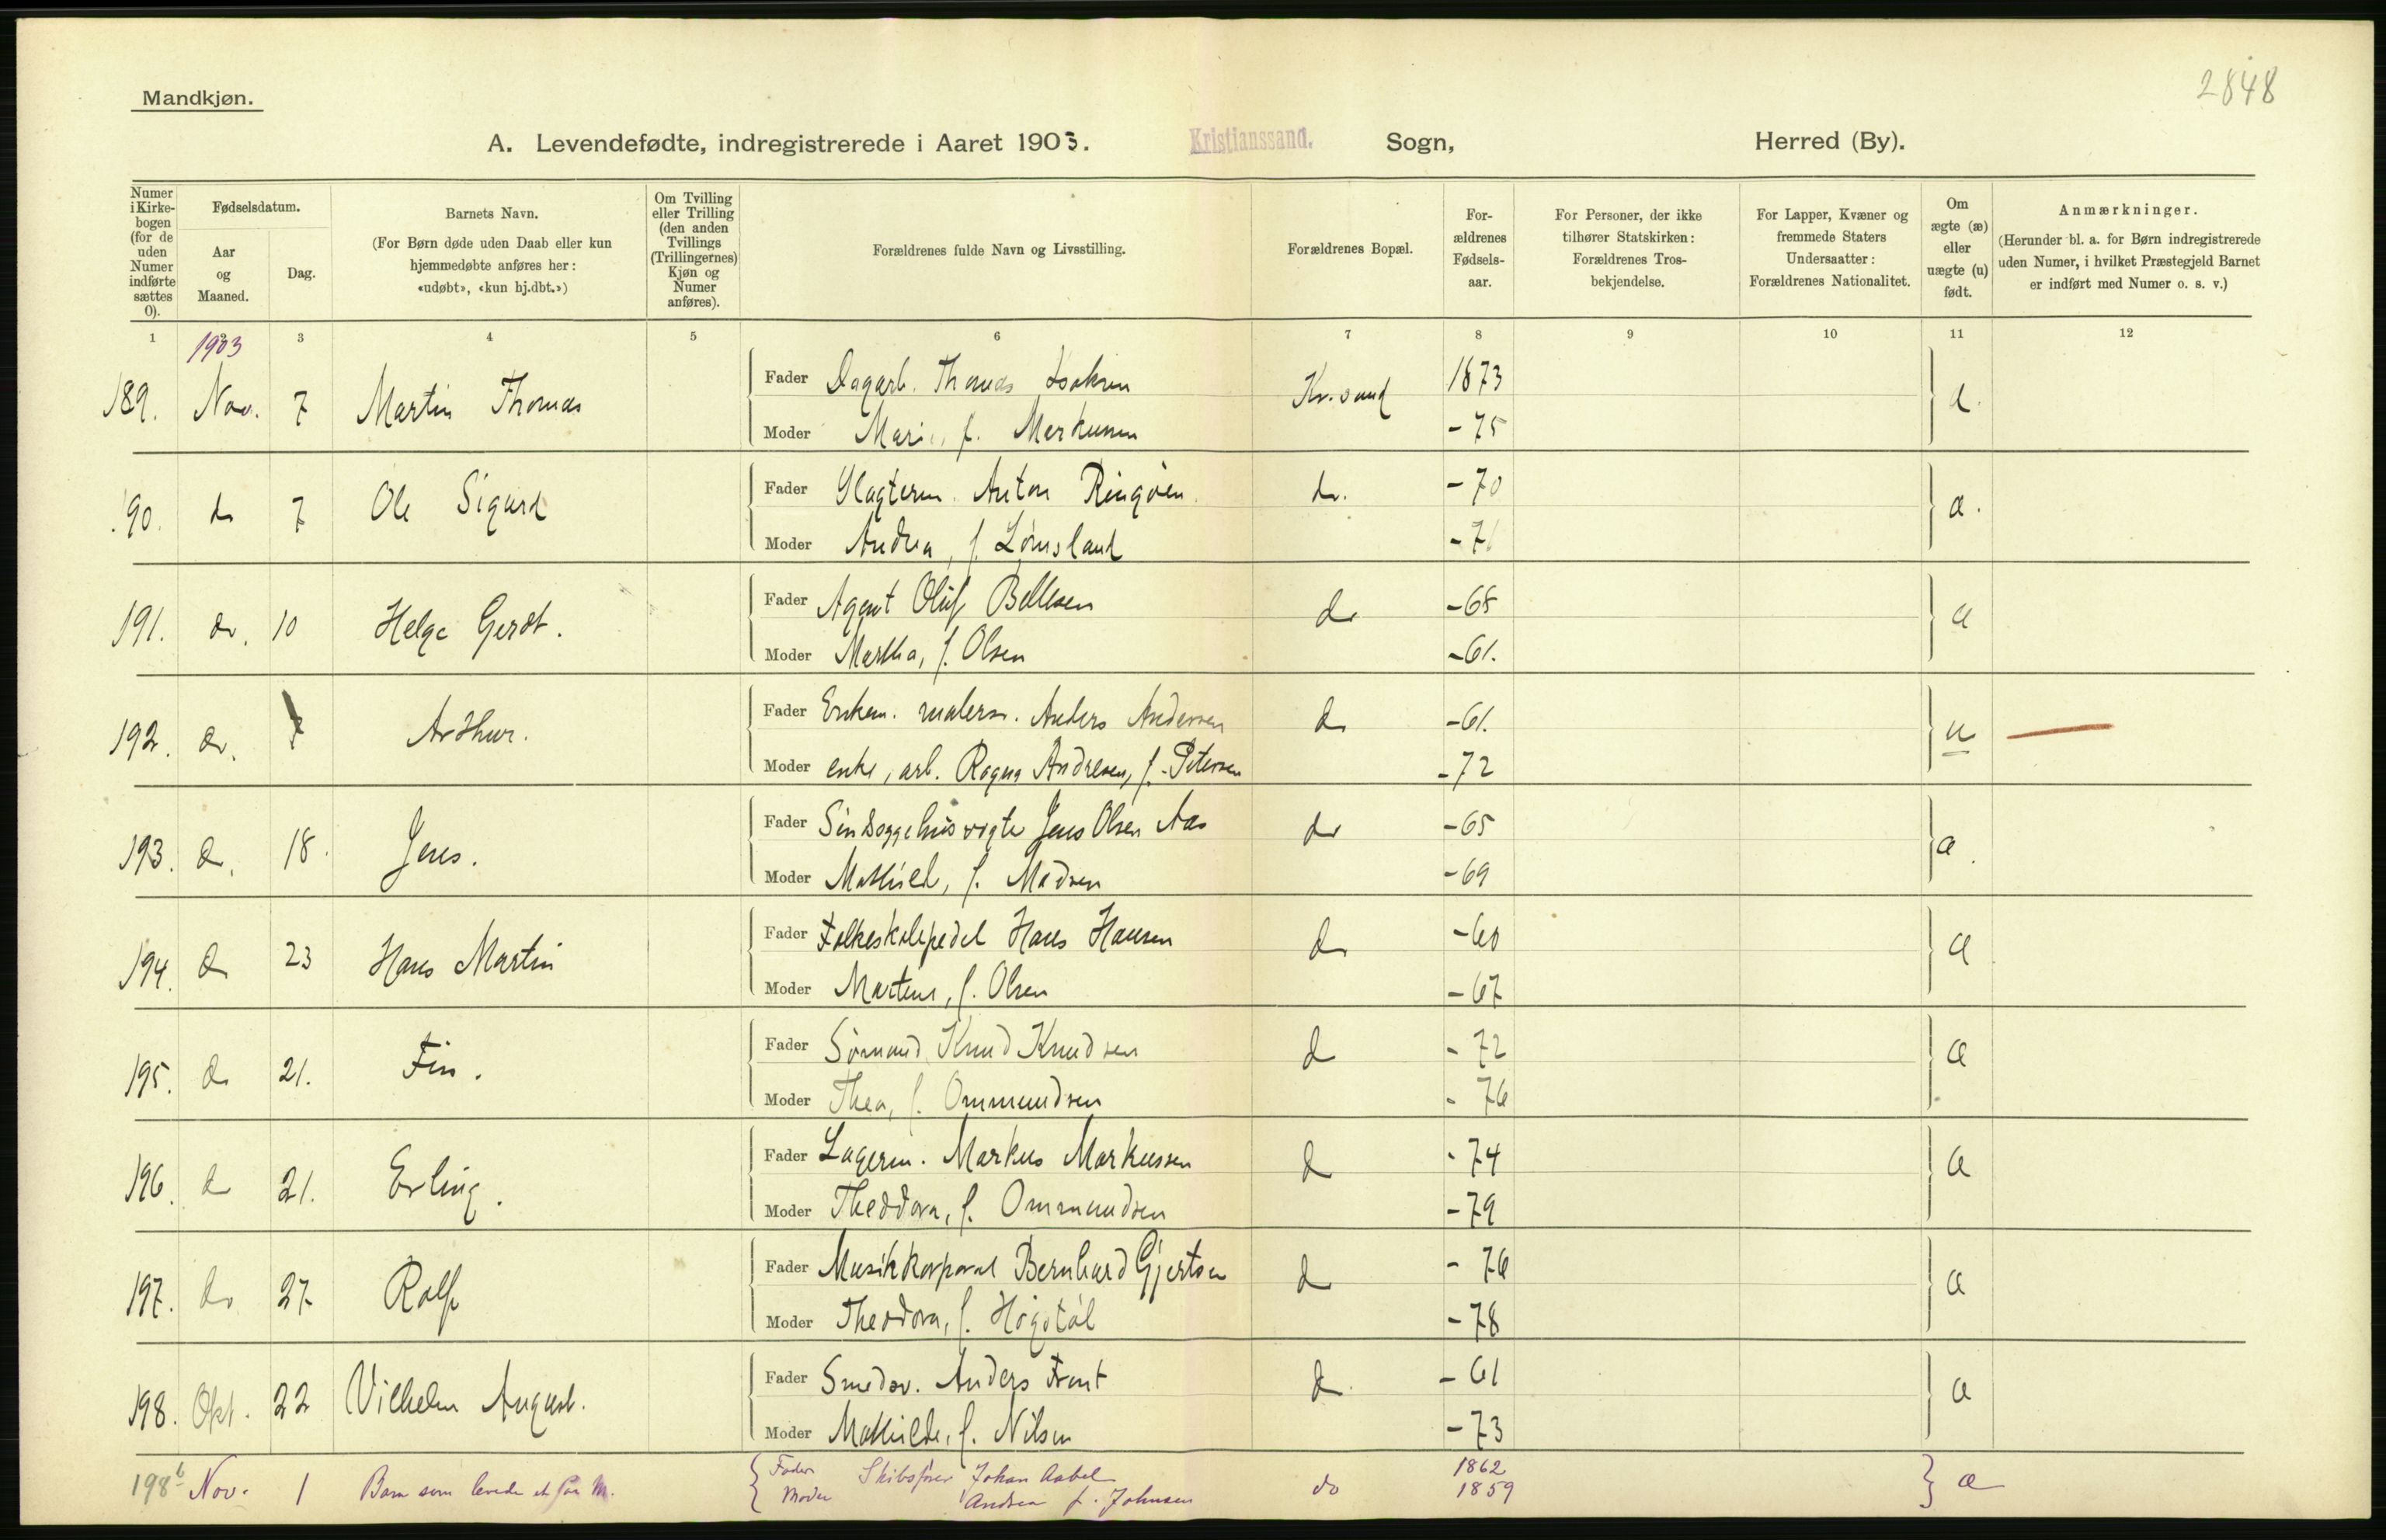 2848
Mandkjøn.
A. Levendefødte, indregistrerede i Aaret 1903. Kristianssand. Sogn, Herred (By).
Numer i Kirkebogen (for de uden Numer indførte sættes 0).
Fødselsdatum.
Aar og Maaned.
Dag.
Barnets Navn.
(For Børn døde uden Daab eller kun hjemmedøbte anføres her: «udøbt», «kun hj.dbt.»)
Om Tvilling eller Trilling (den anden Tvillings (Trillingernes) Kjøn og Numer anføres).
Forældrenes fulde Navn og Livsstilling.
Forældrenes Bopæl.
Forældrenes Fødselsaar.
For Personer, der ikke tilhører Statskirken: Forældrenes Trosbekjendelse.
For Lapper, Kvæner og fremmede Staters Undersaatter: Forældrenes Nationalitet.
Om ægte (æ) eller uægte (u) født.
Anmærkninger.
(Herunder bl. a. for Børn indregistrerede uden Numer, i hvilket Præstegjeld Barnet er indført med Numer o. s. v.)
1 3 4 5 6 7 8 9 10 11 12
1903
189. Nov. 7 Martin Thomas Fader Dagarb. Thomas Isaksen Kr.sand 1873 æ.
Moder Marie, f. Markussen - 75
190. do 7 Ole Sigurd Fader Slagterm. Anton Ringøen do. - 70 æ.
Moder Andrea, f. Lømsland - 71
191. do. 10 Helge Gerdt. Fader Agent Oluf Bellesen do - 68 æ
Moder Martha, f. Olsen - 61.
192. do. 7 Arthur. Fader Enkem. malerm. Anders Andersen do - 61. u
Moder enke, arb. Ragna Andresen, f. Petersen - 72
193. do. 18. Jens. Fader Sindssygehusvogter Jens Olsen Aas do - 65 æ.
Moder Mathilde, f. Madsen - 69
194. do 23 Hans Martin Fader Folkeskolepedel Hans Hansen do - 60 æ
Moder Martine, f. Olsen - 67
195. do 21. Fin. Fader Sømand Knud Knudsen do - 72 æ
Moder Thea, f. Ommundsen - 76
196. do 21. Erling. Fader Lagerm. Markus Markussen do - 74 æ
Moder Theodora, f. Ommundsen - 79
197. do 27 Rolf Fader Musikkorporal Bernhard Gjertsen do - 76 æ
Moder Theodora, f. Høgstøl - 78
198. Okt. 22 Vilhelm August. Fader Smedsv. Anders Front do - 61 æ
Moder Mathilde, f. Nilsen - 73
198b Nov. 1 Barn som levede et Par M. Fader Skibsfører Johan Aabel do 1862 æ
Moder Andrea f. Johnsen 1859